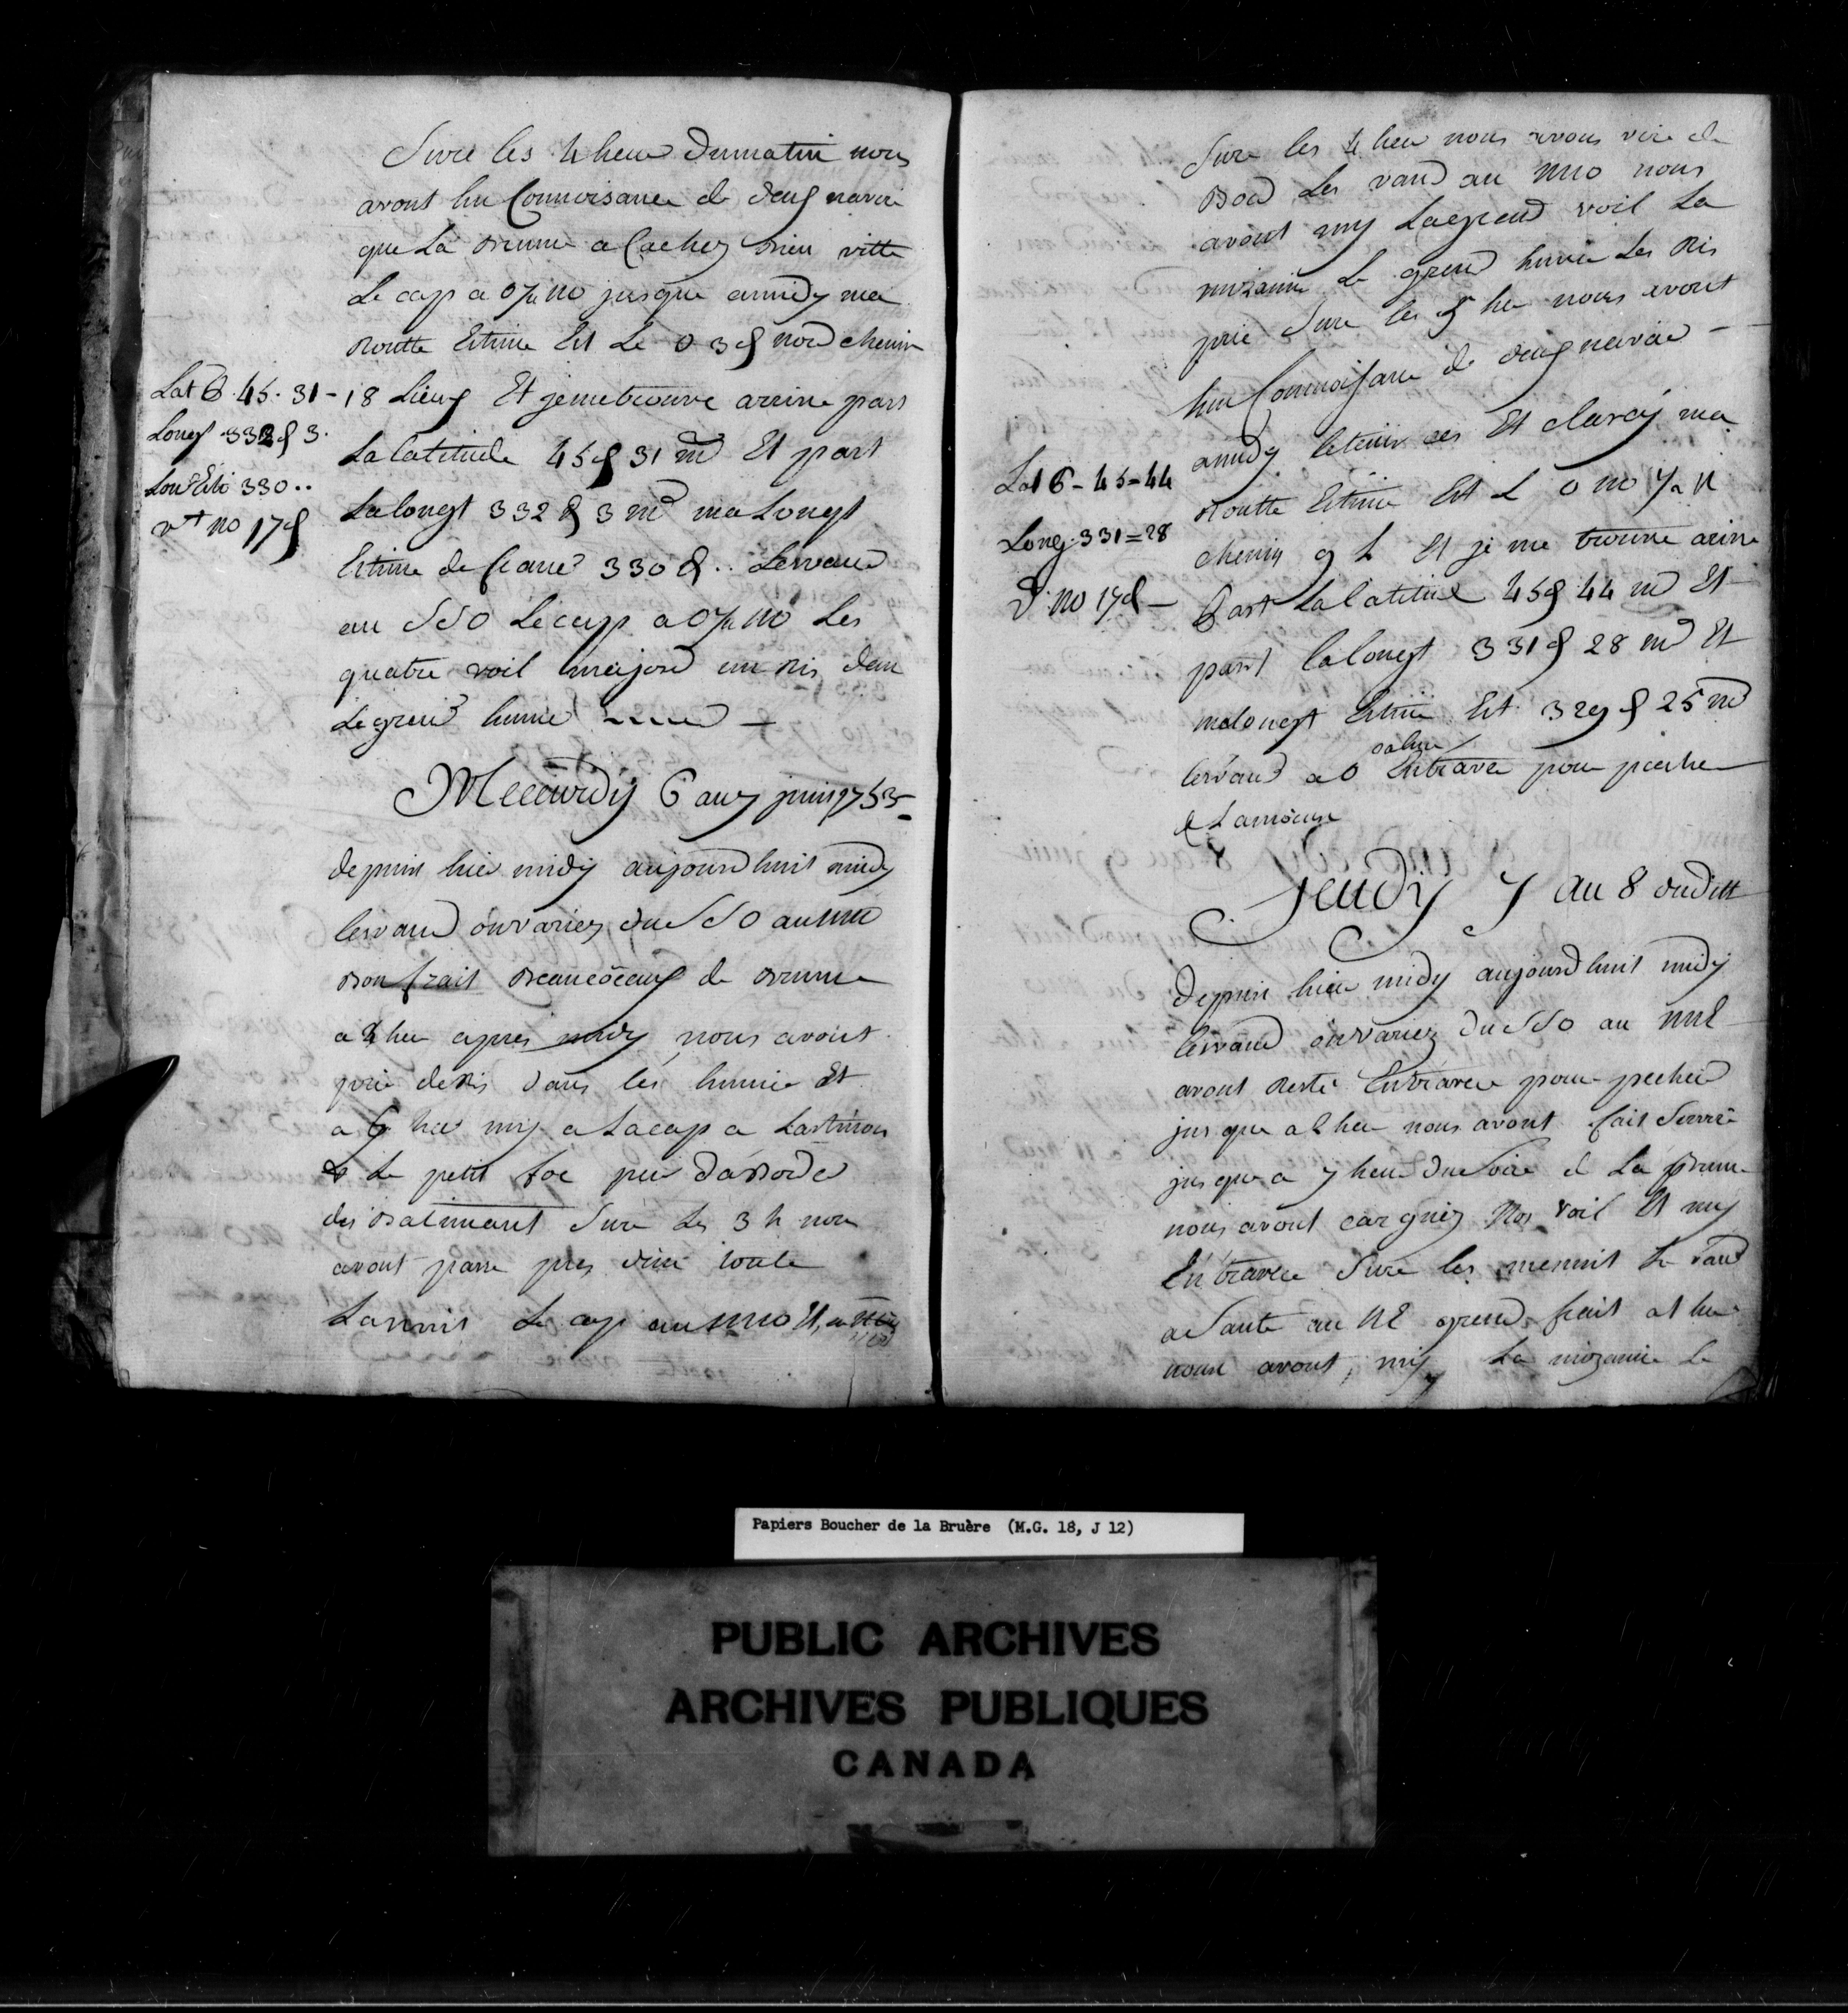 Sure les 4 heur dumatin nous
avont hu Connoisance de deux navire
que La brume a Cachez bien vitte
Le cap a O 1/4 NO jusque amidy ma
Routte Estime Est Le O 3 d nord chemin
18 Lieux Et je me trouve arrive part
La latitude 45 d 31 m Et part
La longt 332 d 3 m ma Longt
Estime de 330 d .. Levand
au SSO Le cap a O 1/4 NO Les
quatre voil major un ris dan
Le grend hunier
Lat 6 . 45 . 31 -
Longt 332 d 3 .
Lon Esti 330 ..
vt no 17 d
Mecurdy 6 au 7 juin 1755
depuis hier midy aujourdhuit midy
levand ön variez du SSO au
bon frait Beaucöcaup de brume
a 2 heu apres midy nous avont
prie de Ris dans les hunier Et
a 6 heu my a La cap a Lartimon
& Le petit foc peur dabborder
des Batimant Sure Les 3 h nou
avont passe pres dun toute
La nuit Le cap au NNO Et au
Sure les 4 heu nous avons vire de
Bord Les vand au NNO nous
avont my Lagrend voil La
mizanne Le grend hunie Les Ris
prie Sure les 9 heu nous avont
hu Connoissanse de deux navire
amidy le tems ses Et claircy ma
Routte Estime Est L O NO 1/4 N
chemin 9 L Et je me trouve arive
Part La latitude 45 d 44 m Et
part la longt 331 d 28 m Et
ma longt Estime Est 329 d 25 m
levand a O Entraver pour peche
a la morue
Lat 6 - 45 = 44
Long . 331 = 28
V . no 17 d -
Jeudy 7 au 8 duditt
Depuis hier midy aujourdhuit midy
levand ön variez Du SSO au NNE
avont Resté Entraver pour pecher
jusque a 2 heu nous avont fait Servir
jusque a 7 heu duSoire et La Brume
nous avont carguez Nos voil Et my
Entraver Sure les menuit Le vand
a Sauté au NE grend frait a 1 heu
nous avont my La mizanne Le
Papiers Boucher de la Bruère (M.G. 18, J 12)
PUBLIC ARCHIVES
ARCHIVES PUBLIQUES
CANADA